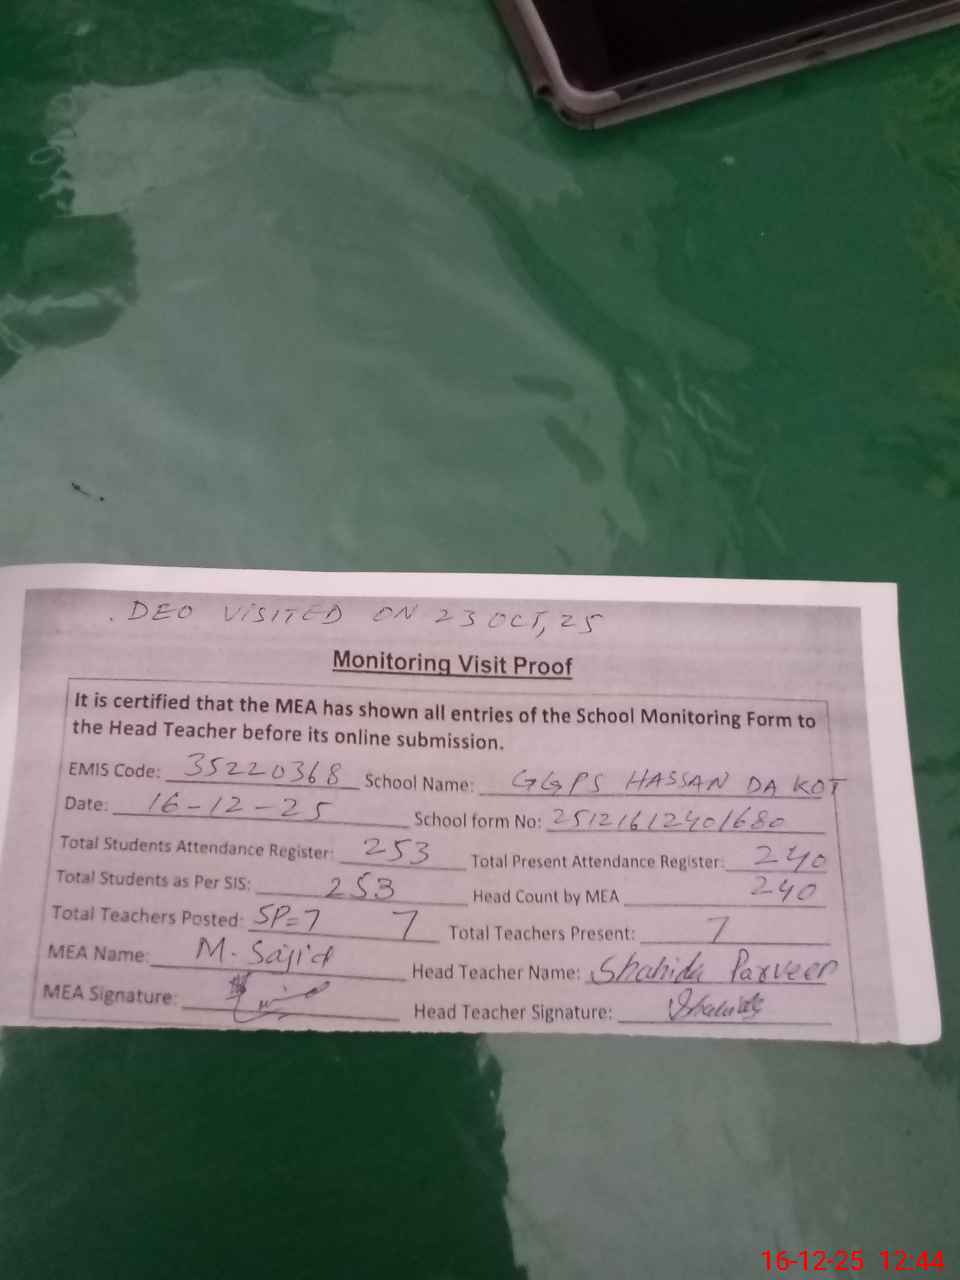 . DEO VISITED ON 23 OCT, 25
Monitoring Visit Proof
It is certified that the MEA has shown all entries of the School Monitoring Form to
the Head Teacher before its online submission.
EMIS Code: 35220368 School Name: GGPS HASSAN DA KOT
Date: 16-12-25 School form No: 25121612401680
Total Students Attendance Register: 253 Total Present Attendance Register: 240
Total Students as Per SIS: 253 Head Count by MEA 240
Total Teachers Posted: SP=7 7 Total Teachers Present: 7
MEA Name: M. Sajid Head Teacher Name: Shahida Parveen
MEA Signature: Head Teacher Signature: Shahida
16-12-25 12:44